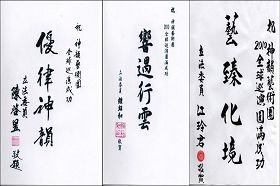 祝 神韻藝術團
全球巡演成功
優律神韻
立法委員
陳啓昱
敬題
祝 神韻藝術團
2010全球巡演圓滿成功
響遏行雲
立法委員
鍾紹和
敬賀
祝 神韻藝術團
2010全球巡演圓滿成功
藝臻化境
立法委員
江玲君
敬賀